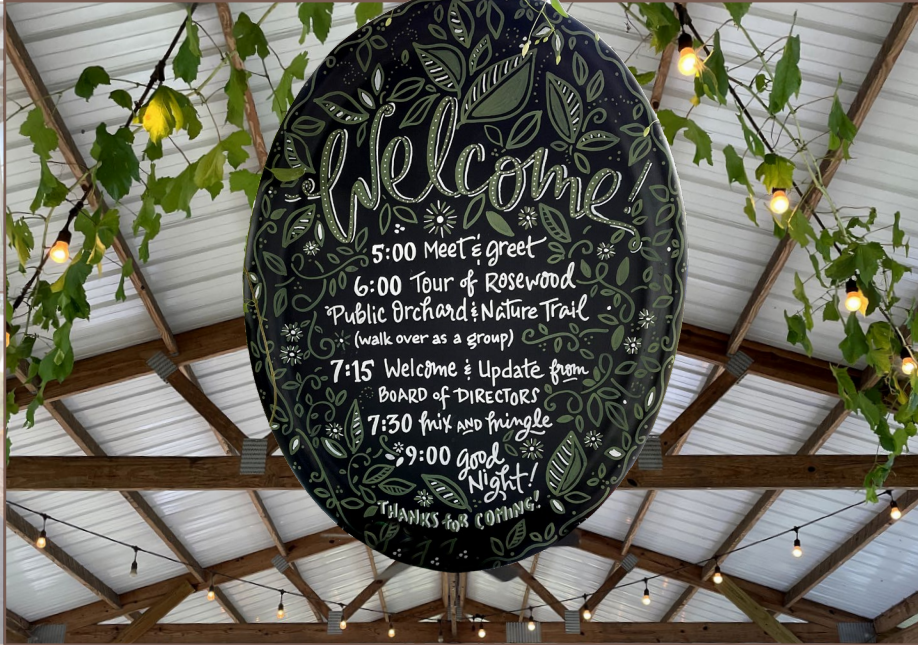 Welcome!
5:00 Meet & greet
6:00 Tour of Rosewood
Public Orchard & Nature Trail
(walk over as a group)
7:15 Welcome & Update from
BOARD of DIRECTORS
7:30 mix AND mingle
9:00 good
Night!
THANKS for COMING!